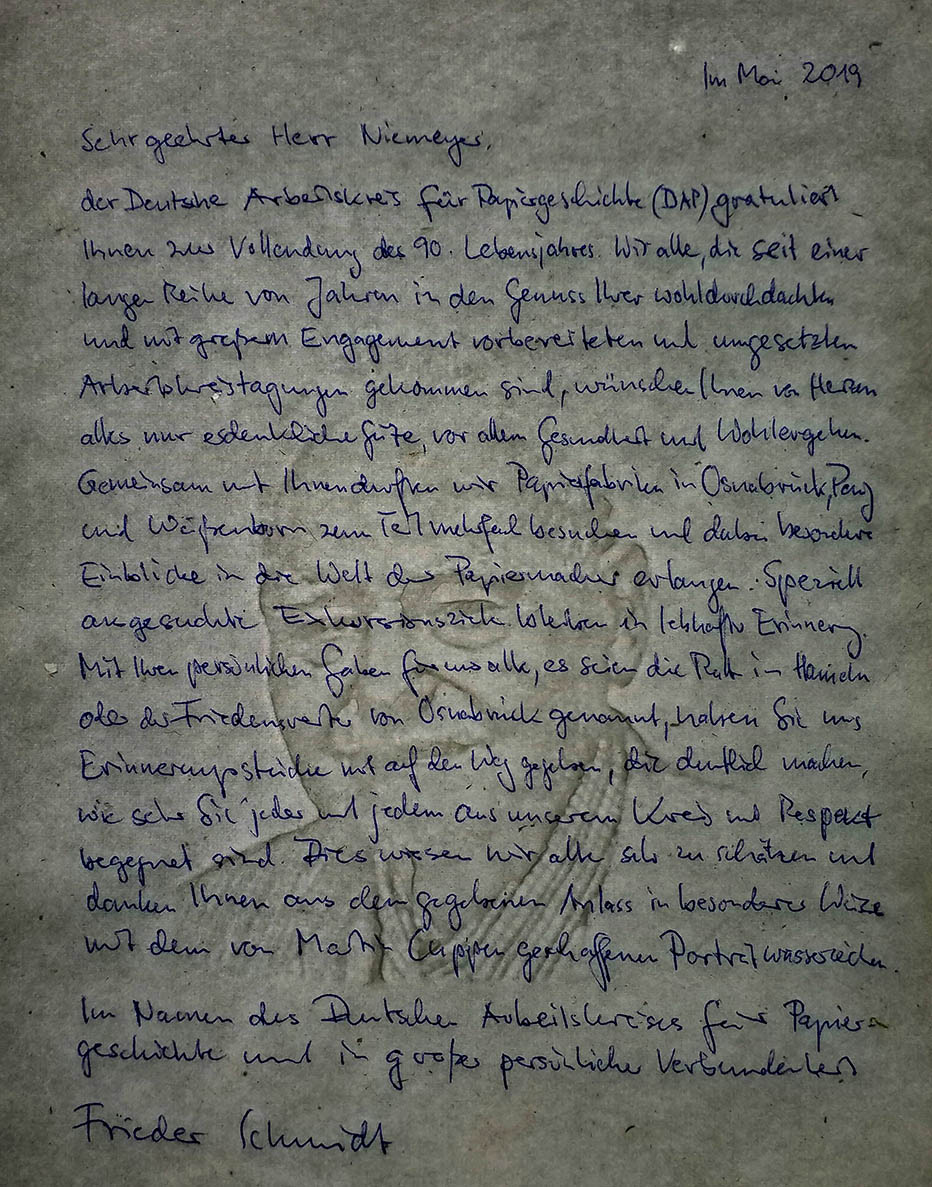 Im Mai 2019
Sehr geehrter Herr Niemeyer,
der Deutsche Arbeitskreis für Papiergeschichte (DAP) gratuliert
Ihnen zur Vollendung des 90. Lebensjahres. Wir alle, die seit einer
langen Reihe von Jahren in den Genuss Ihrer wohldurchdachten
und mit großem Engagement vorbereiteten und umgesetzten
Arbeitskreistagungen gekommen sind, wünschen Ihnen von Herzen
alles nur erdenkliche Gute, vor allem Gesundheit und Wohlergehen.
Gemeinsam mit Ihnen durften wir Papierfabriken in Osnabrück, Penig
und Weißenborn zum Teil mehrfach besuchen und dabei besondere
Einblicke in die Welt der Papiermacher erlangen. Speziell
ausgesuchte Exkursionsziele bleiben in lebhafter Erinnerung.
Mit Ihren persönlichen Gaben für uns alle, es seien die Ratte in Hameln
oder der Friedensreiter von Osnabrück genannt, haben Sie uns
Erinnerungsstücke mit auf den Weg gegeben, die deutlich machen,
wie sehr Sie jeder und jedem aus unserem Kreis mit Respekt
begegnet sind. Dies wissen wir alle sehr zu schätzen und
danken Ihnen aus dem gegebenen Anlass in besonderer Weise
mit dem von Martin geschaffenen Porträtwasserzeichen.
Im Namen des Deutschen Arbeitskreises für Papier=
geschichte und in großer persönlicher Verbundenheit
Frieder Schmidt